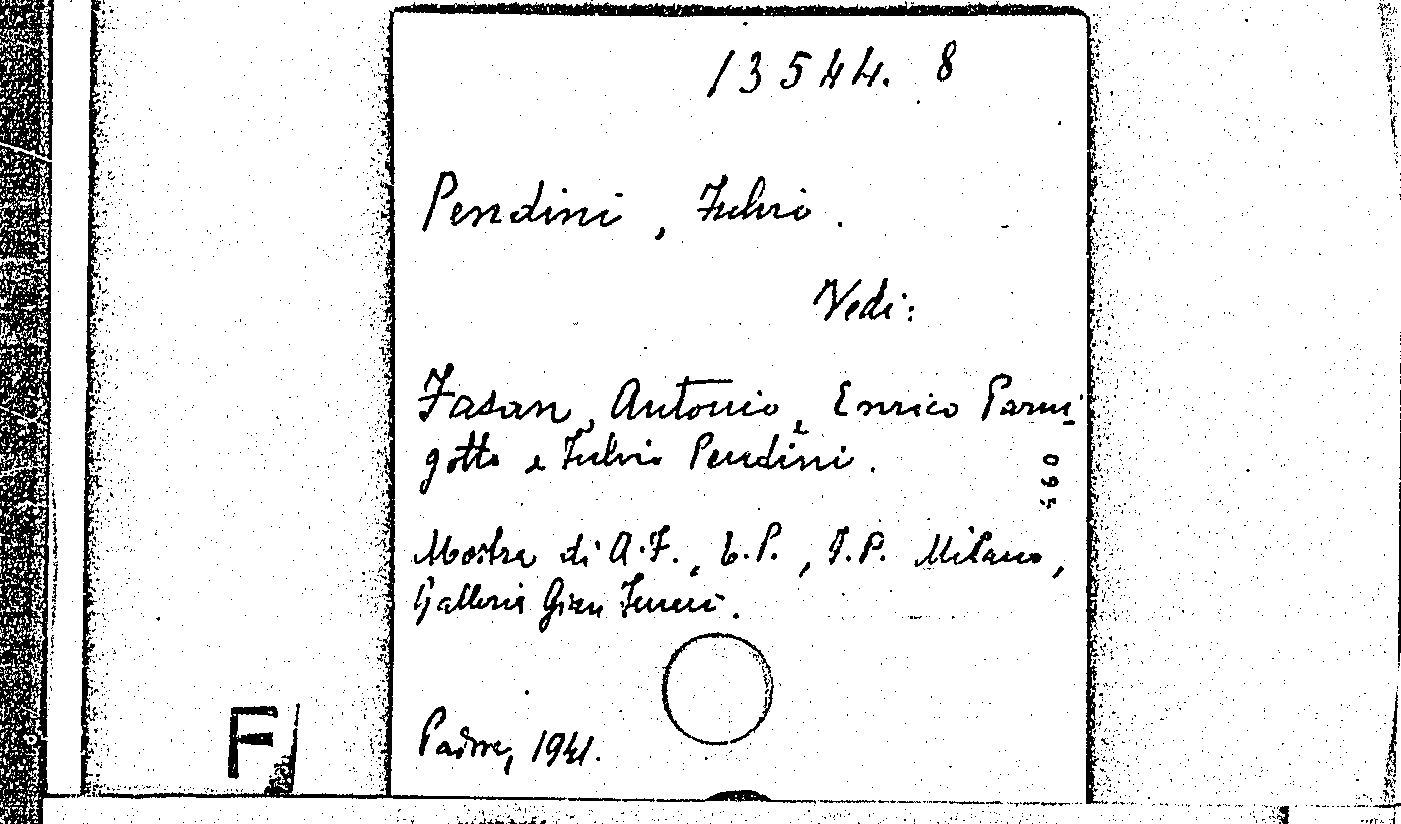 13544. 8
Pendini, Fulvio.
Vedi:
Fasan, Antonio, Enrico Parmi-
gotto e Fulvio Pendini.
095
Mostra di A.F., E.P., F.P. Milano,
Galleria Gian Ferrari.
Padova, 1941.
F